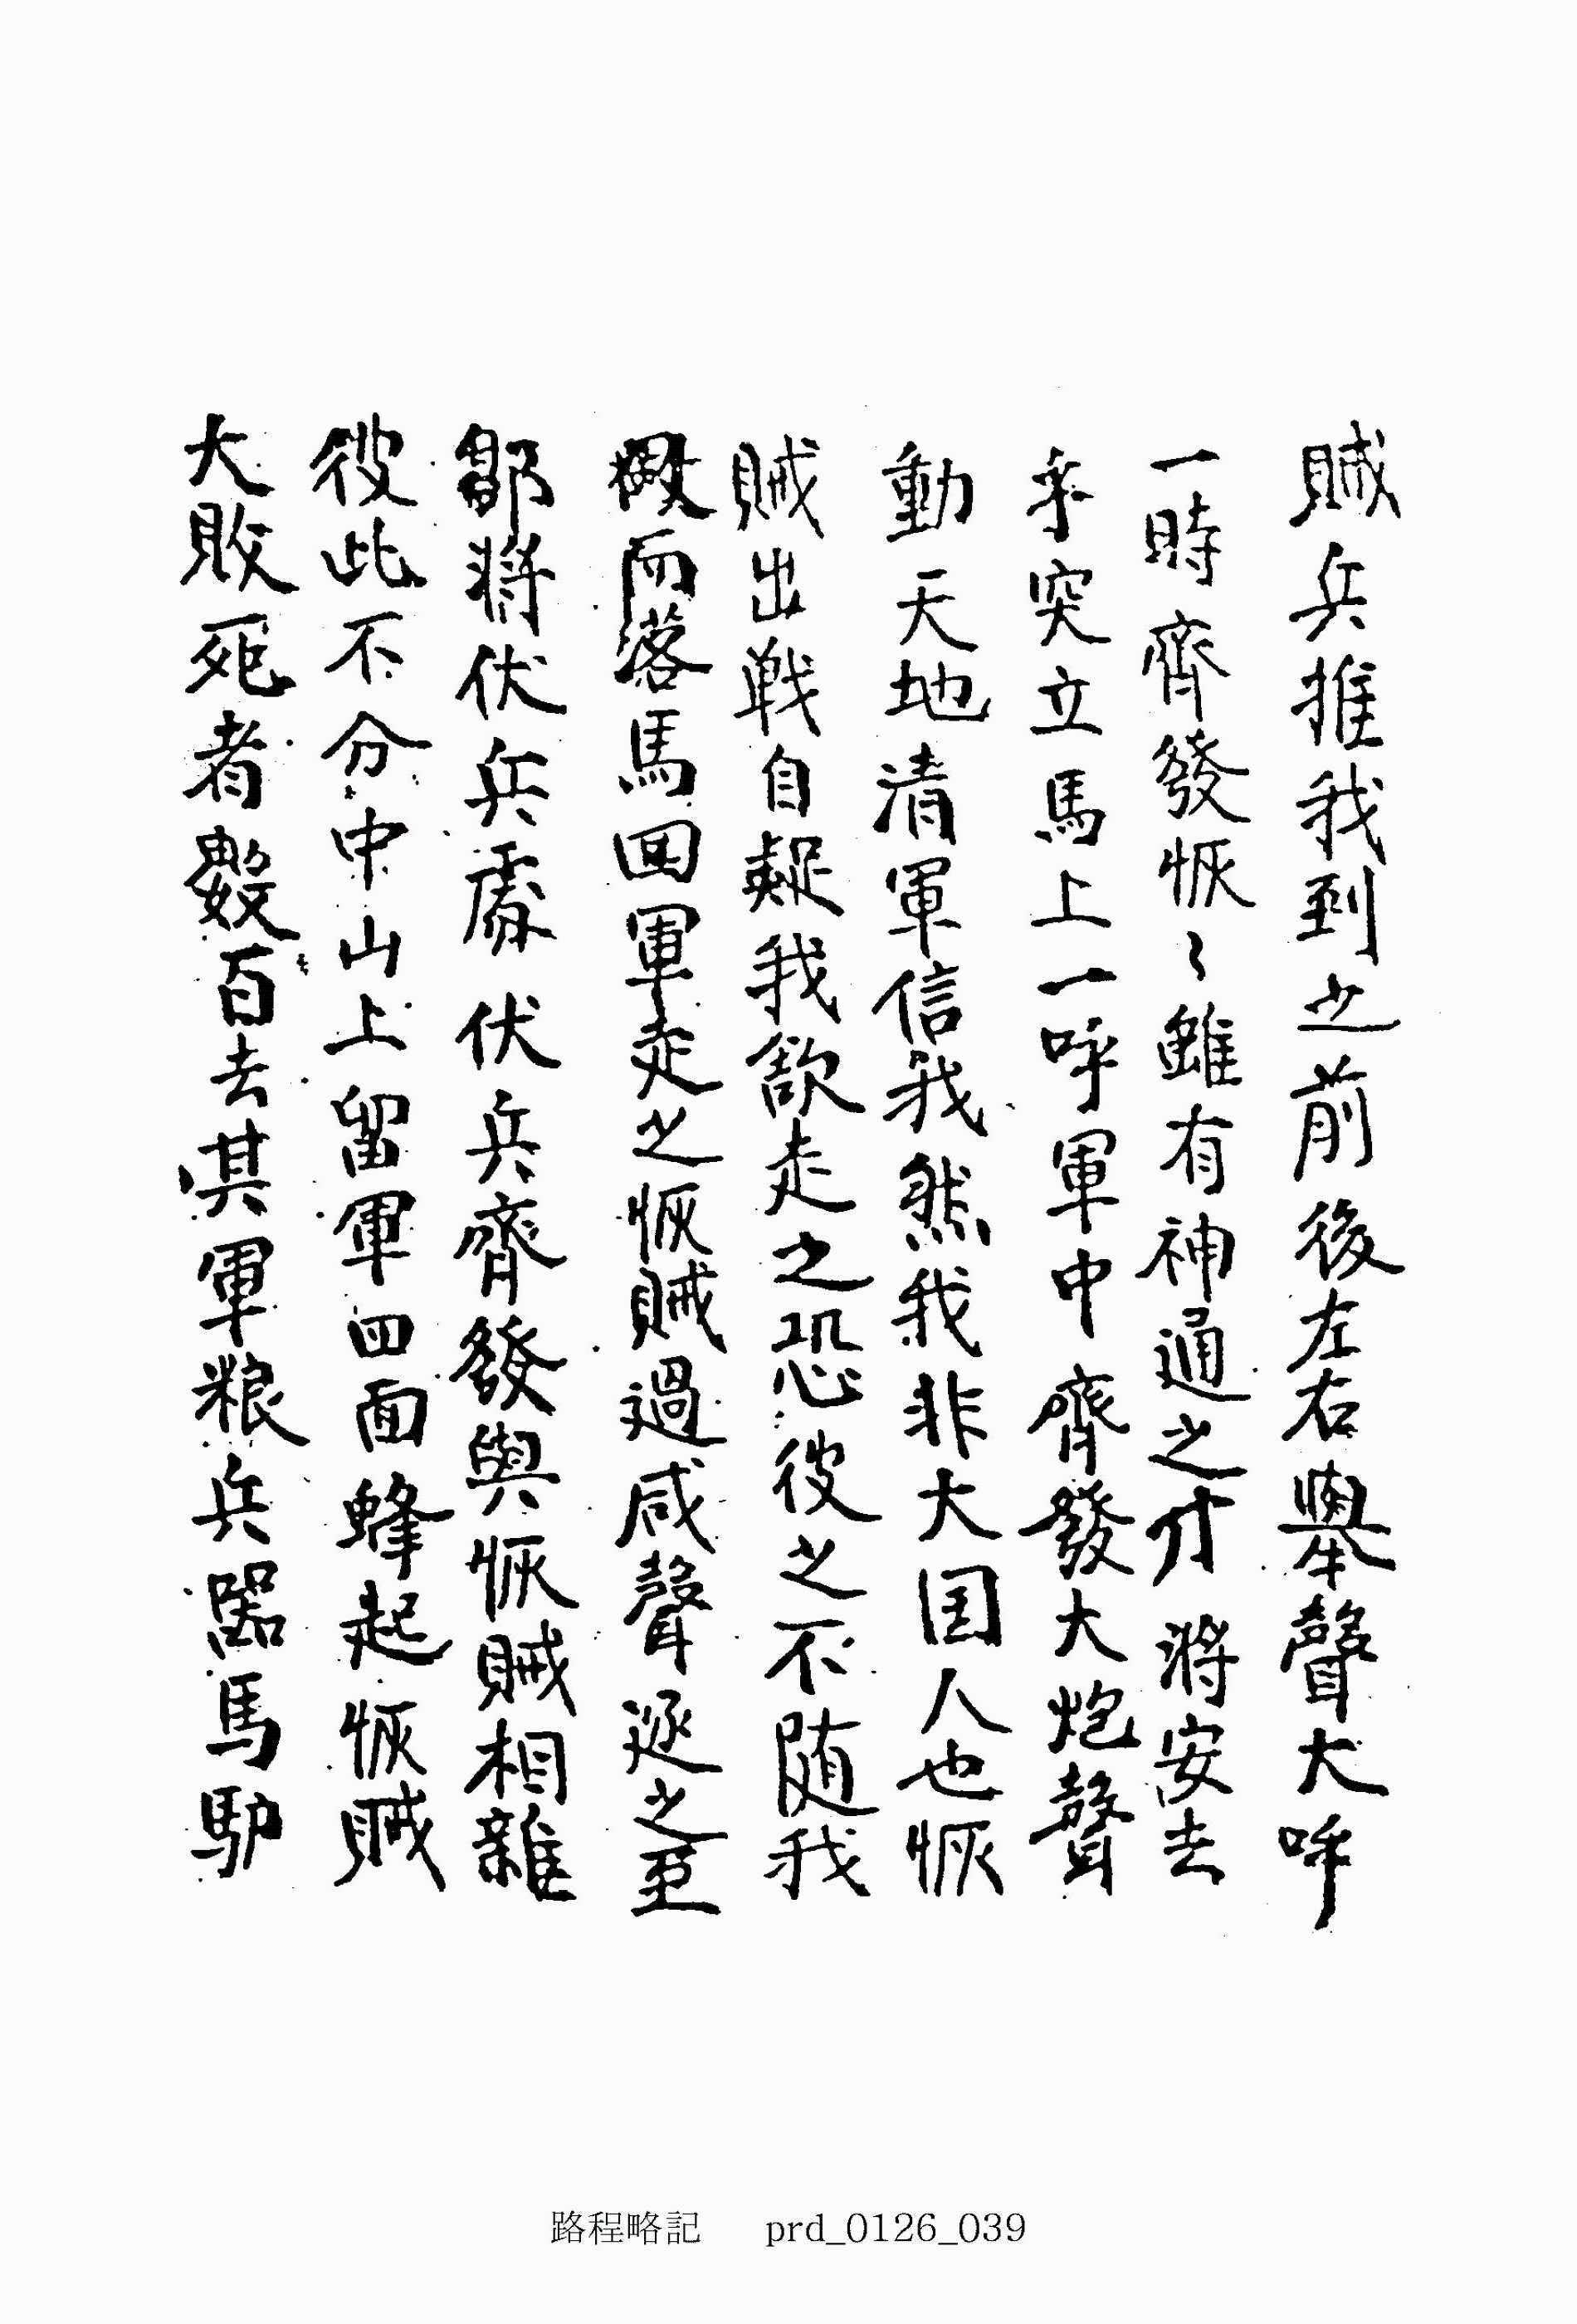 賊兵推我到之前後左右擧聲大呼
一時齊發恢〻雖有神通之才將安去
乎突立馬上一呼軍中齊發大炮聲
動天地清軍信我然我非大国人也恢
賊出戦自疑我欲走之恐彼之不随我
而落馬回軍走之恢賊過咸聲逐之至
鄒将伏兵處伏兵齊發與恢賊相雜
彼此不分中山上留軍四面蜂起恢賊
大敗死者數百去其軍粮兵器馬馿
路程略記 prd_0126_039